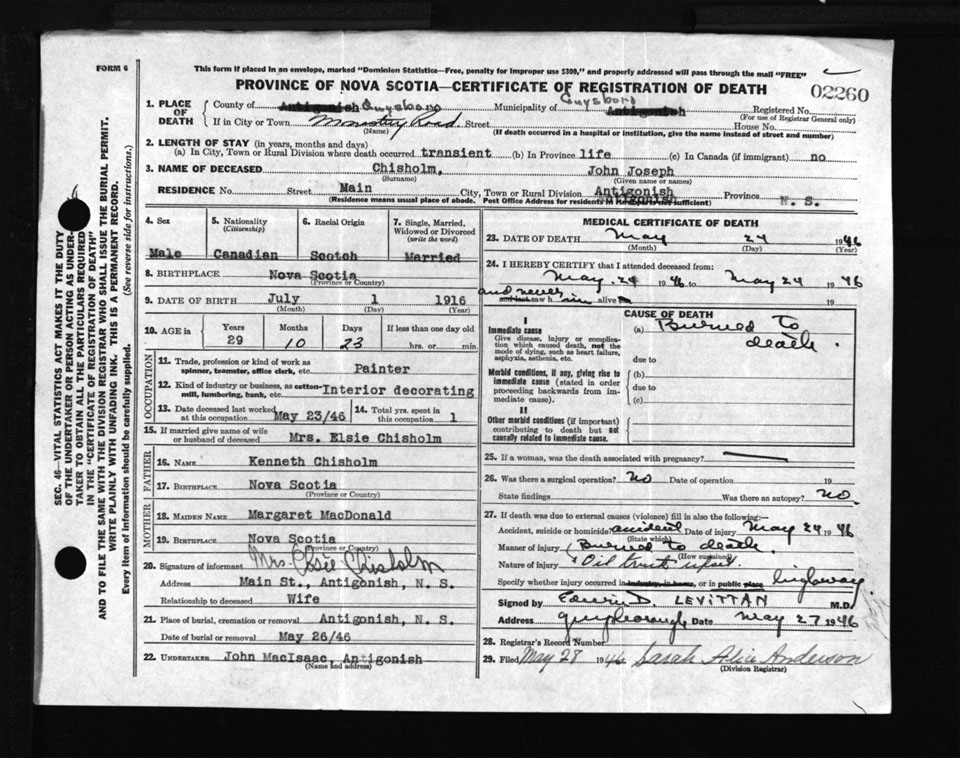 FORM 6
This form if placed in an envelope, marked "Dominion Statistics—Free, penalty for improper use $300," and properly addressed will pass through the mail "FREE"
PROVINCE OF NOVA SCOTIA—CERTIFICATE OF REGISTRATION OF DEATH
02260
1. PLACE OF DEATH
County of Antigonish Guysboro Municipality of Guysboro Antigonish Registered No.
(For use of Registrar General only)
If in City or Town Monastery Road. Street House No.
(Name) (If death occurred in a hospital or institution, give the name instead of street and number)
2. LENGTH OF STAY (in years, months and days)
(a) In City, Town or Rural Division where death occurred transient (b) In Province life (c) In Canada (if immigrant) no
3. NAME OF DECEASED Chisholm, John Joseph
(Surname) (Given name or names)
RESIDENCE No. Street Main City, Town or Rural Division Antigonish Province N. S.
(Residence means usual place of abode. Post Office Address for residents in is not sufficient)
4. Sex Male
5. Nationality (Citizenship) Canadian
6. Racial Origin Scotch
7. Single, Married, Widowed or Divorced (write the word) Married
8. BIRTHPLACE Nova Scotia
(Province or Country)
9. DATE OF BIRTH July 1 1916
(Month) (Day) (Year)
10. AGE in Years Months Days If less than one day old
29 10 23 hrs. or min.
OCCUPATION
11. Trade, profession or kind of work as spinner, teamster, office clerk, etc. Painter
12. Kind of industry or business, as cotton-mill, lumbering, bank, etc. Interior decorating
13. Date deceased last worked at this occupation May 23/46
14. Total yrs. spent in this occupation 1
15. If married give name of wife or husband of deceased Mrs. Elsie Chisholm
FATHER
16. NAME Kenneth Chisholm
17. BIRTHPLACE Nova Scotia
(Province or Country)
MOTHER
18. MAIDEN NAME Margaret MacDonald
19. BIRTHPLACE Nova Scotia
(Province or Country)
20. Signature of informant Mrs. Elsie Chisholm
Address Main St., Antigonish, N. S.
Relationship to deceased Wife
21. Place of burial, cremation or removal Antigonish, N. S.
Date of burial or removal May 26/46
22. UNDERTAKER John MacIsaac, Antigonish
(Name and address)
MEDICAL CERTIFICATE OF DEATH
23. DATE OF DEATH May 24 1946
(Month) (Day) (Year)
24. I HEREBY CERTIFY that I attended deceased from:
May. 24 1946 to May 24 1946
and never
and last saw him alive 19
CAUSE OF DEATH
I
Immediate cause
Give disease, injury or complication which caused death, not the mode of dying, such as heart failure, asphyxia, asthenia, etc.
(a) Burned to death.
due to
Morbid conditions, if any, giving rise to immediate cause (stated in order proceeding backwards from immediate cause).
(b)
due to
(c)
II
Other morbid conditions (if important) contributing to death but not causally related to immediate cause.
25. If a woman, was the death associated with pregnancy?
26. Was there a surgical operation? No Date of operation 19
State findings Was there an autopsy? No.
27. If death was due to external causes (violence) fill in also the following:—
Accident, suicide or homicide? accident Date of injury May 24 1946
(State which)
Manner of injury (Burned to death.
(How sustained)
Nature of injury Oil truck upset.
Specify whether injury occurred in industry, in home, or in public place highway
Signed by Edwin D. LEVITTAN M.D.
Address Date May 27 1946
28. Registrar's Record Number
29. Filed May 28 1946 Sarah Alice Anderson
(Division Registrar)
SEC. 46—VITAL STATISTICS ACT MAKES IT THE DUTY
OF THE UNDERTAKER OR PERSON ACTING AS UNDER-
TAKER TO OBTAIN ALL THE PARTICULARS REQUIRED
IN THE "CERTIFICATE OF REGISTRATION OF DEATH"
AND TO FILE THE SAME WITH THE DIVISION REGISTRAR WHO SHALL ISSUE THE BURIAL PERMIT.
WRITE PLAINLY WITH UNFADING INK. THIS IS A PERMANENT RECORD.
Every item of information should be carefully supplied. (See reverse side for instructions.)